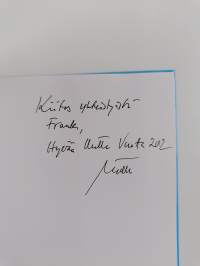 Kiitos yhteistyöstä
Frank,
Hyvää Uutta Vuotta 202